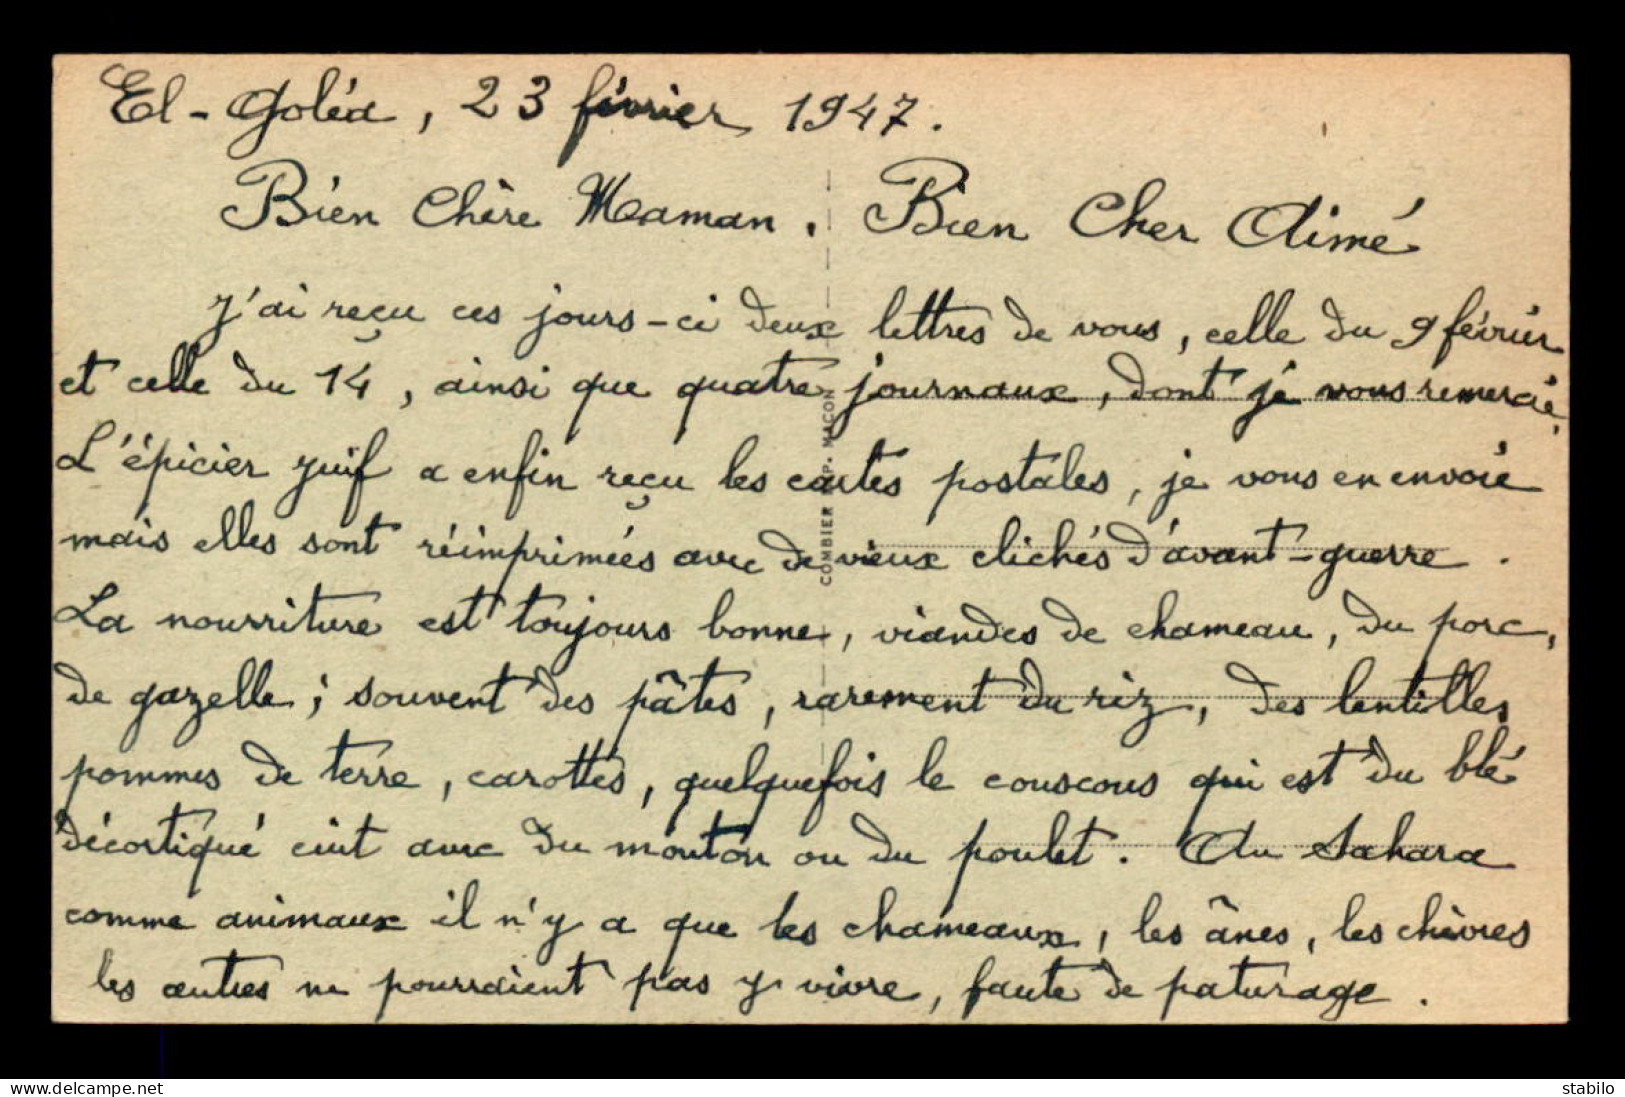 El-Goléa, 23 février 1947.
Bien Chère Maman. Bien Cher Aimé
J'ai reçu ces jours-ci deux lettres de vous, celle du 9 février
et celle du 14, ainsi que quatre journaux, dont je vous remercie.
L'épicier juif a enfin reçu les cartes postales, je vous en envoie
mais elles sont réimprimées avec de vieux clichés d'avant-guerre.
La nourriture est toujours bonne, viandes de chameau, du porc,
de gazelle; souvent des pâtes, rarement du riz, des lentilles,
pommes de terre, carottes, quelquefois le couscous qui est du blé
décortiqué cuit avec du mouton ou du poulet. Au Sahara
comme animaux il n'y a que les chameaux, les ânes, les chèvres
les autres ne pourraient pas y vivre, faute de paturage.
COMBIER IMP. MACON
delcampe.net
stabilo